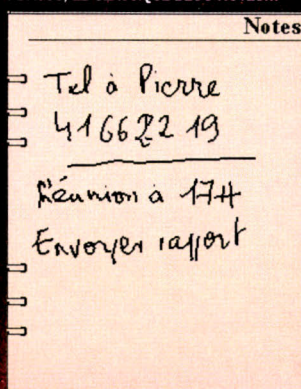 Notes
Tel à Pierre
416622 19
Réunion à 17H
Envoyer rapport